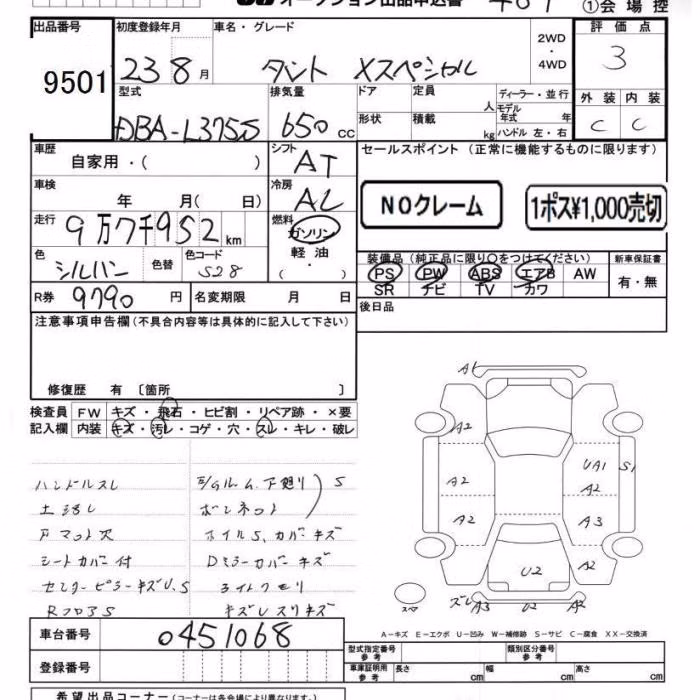 オークション出品申込書 ①会場控
出品番号 初度登録年月 車名・グレード 2WD・4WD 評価点
9501 23 8月 タント Xスペシャル 3
型式 排気量 ドア 定員 人 ディーラー・並行 外装 内装
DBA-L375S 650cc 形状 積載 kg モデル年式 年 C C
ハンドル 左・右
車歴 自家用・( ) シフト AT セールスポイント (正常に機能するものに限ります)
車検 年 月( 日) 冷房 AC NOクレーム 1ポス¥1,000売切
走行 9万7千952km 燃料 ガソリン
軽油
・
( )
色 シルバー 色替 色コード S28 装備品 (純正品に限り○をつけてください) 新車保証書
PS PW ABS エアB AW 有・無
SR ナビ TV カワ
R券 9790円 名変期限 月 日 後日品
注意事項申告欄(不具合内容等は具体的に記入して下さい)
修復歴 有 〔箇所 〕
検査員 FW キズ・飛石・ヒビ割・リペア跡・×要
記入欄 内装 キズ・汚レ・コゲ・穴・スレ・キレ・破レ
ハンドルスレ
下廻り S
ボンネット
Fマット穴 ホイルS、カバーキズ
シートカバー付 Dミラーカバーキズ
センターピラーキズU、S ライトクモリ
キズレスリキズ
A1
A2
UA1 S1
A2 A2
A2 A3
A2 U2 A2
スペア ズレ A3 U2 A2
A-キズ E-エクボ U-凹み W-補修跡 S-サビ C-腐食 XX-交換済
車台番号 0451068
型式指定番号 参考 類別区分番号 参考
登録番号
車庫証明用 参考 長さ cm 幅 cm 高さ cm
希望出品コーナー(コーナーは各会場により異なります)